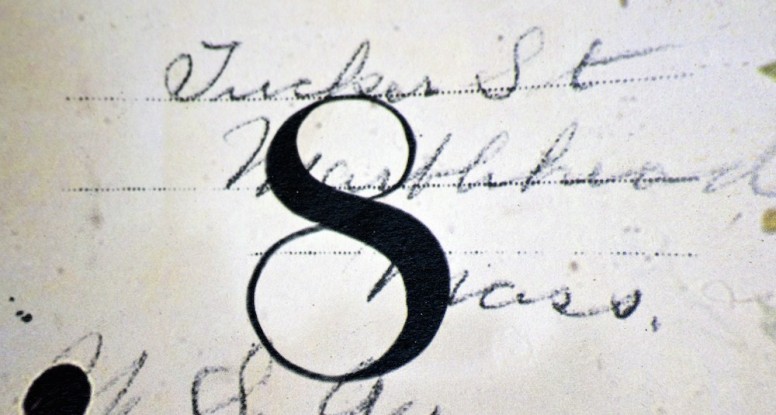 Tucker St
Marblehead
8
Mass.